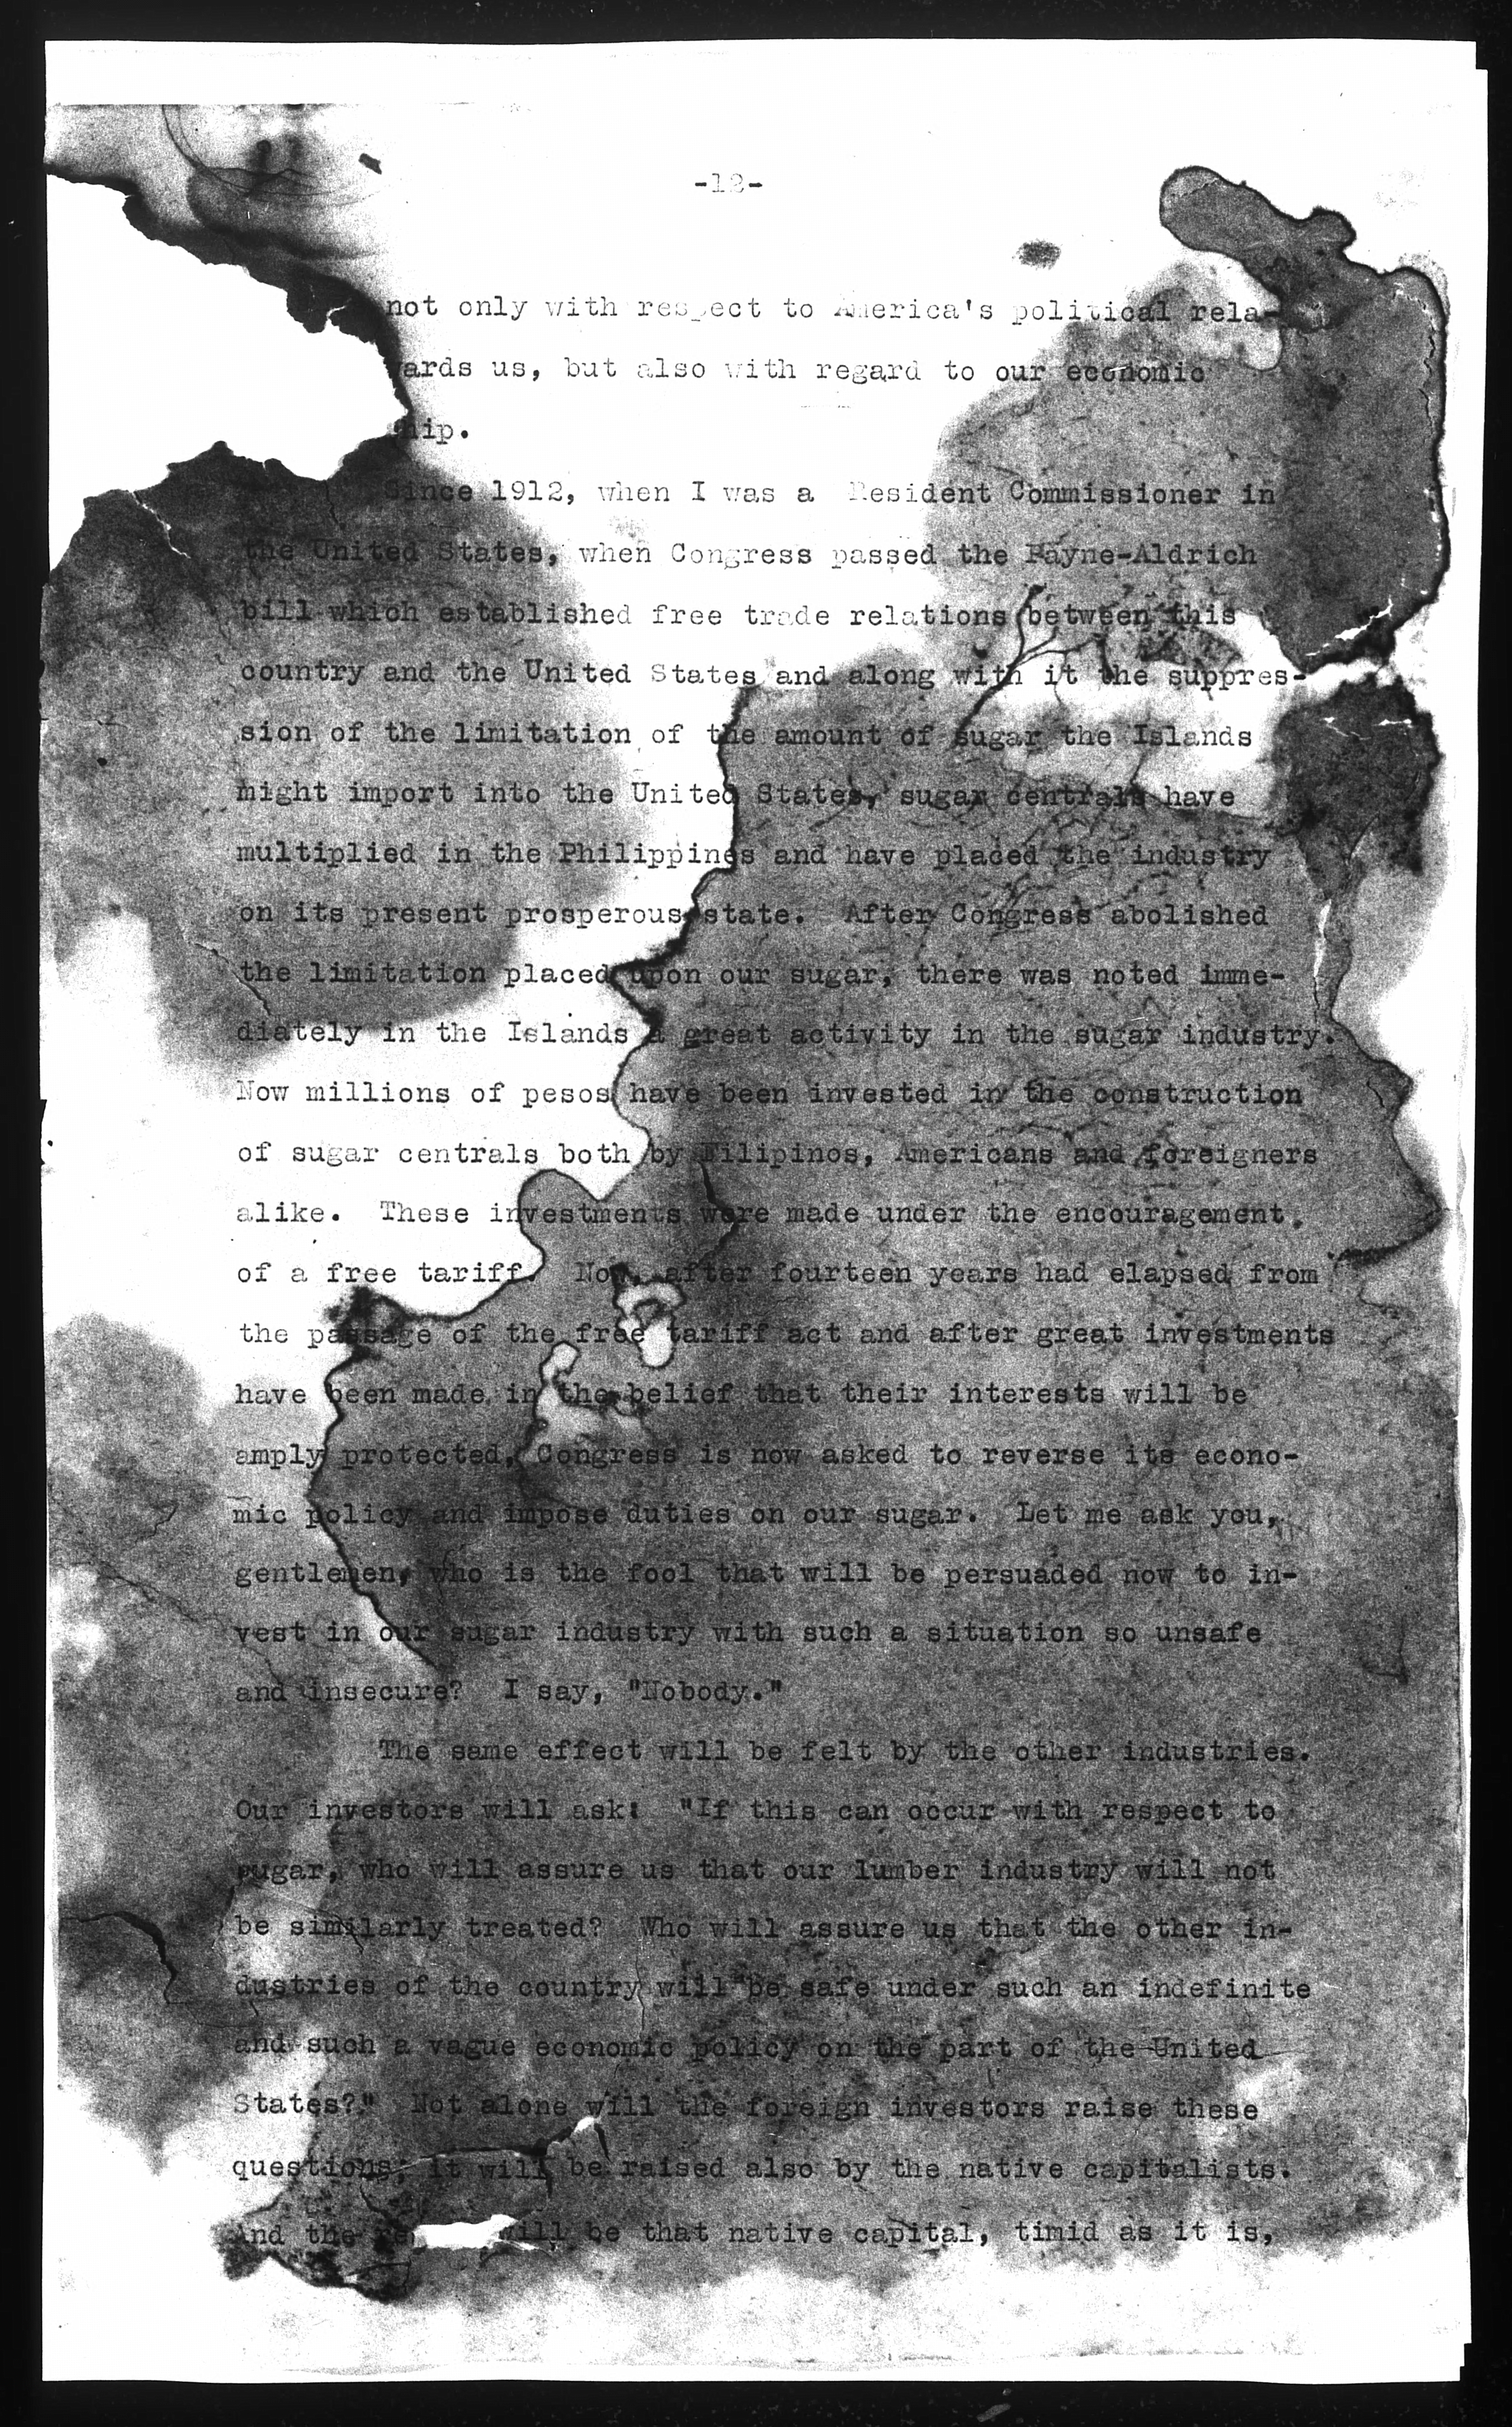 -12-
not only with respect to America's political rela-
wards us, but also with regard to our economic
ship.
Since 1912, when I was a Resident Commissioner in
the United States, when Congress passed the Payne-Aldrich
bill which established free trade relations between this
country and the United States and along with it the suppres-
sion of the limitation of the amount of sugar the Islands
might import into the United States, sugar centrals have
multiplied in the Philippines and have placed the industry
on its present prosperous state. After Congress abolished
the limitation placed upon our sugar, there was noted imme-
diately in the Islands a great activity in the sugar industry.
Now millions of pesos have been invested in the construction
of sugar centrals both by Filipinos, Americans and foreigners
alike. These investments were made under the encouragement
of a free tariff. Now, after fourteen years had elapsed from
the passage of the free tariff act and after great investments
have been made in the belief that their interests will be
amply protected, Congress is now asked to reverse its econo-
mic policy and impose duties on our sugar. Let me ask you,
gentlemen, who is the fool that will be persuaded now to in-
vest in our sugar industry with such a situation so unsafe
and insecure? I say, "Nobody."
The same effect will be felt by the other industries.
Our investors will ask: "If this can occur with respect to
sugar, who will assure us that our lumber industry will not
be similarly treated? Who will assure us that the other in-
dustries of the country will be safe under such an indefinite
and such a vague economic policy on the part of the United
States?" Not alone will the foreign investors raise these
questions; it will be raised also by the native capitalists.
And the will be that native capital, timid as it is,